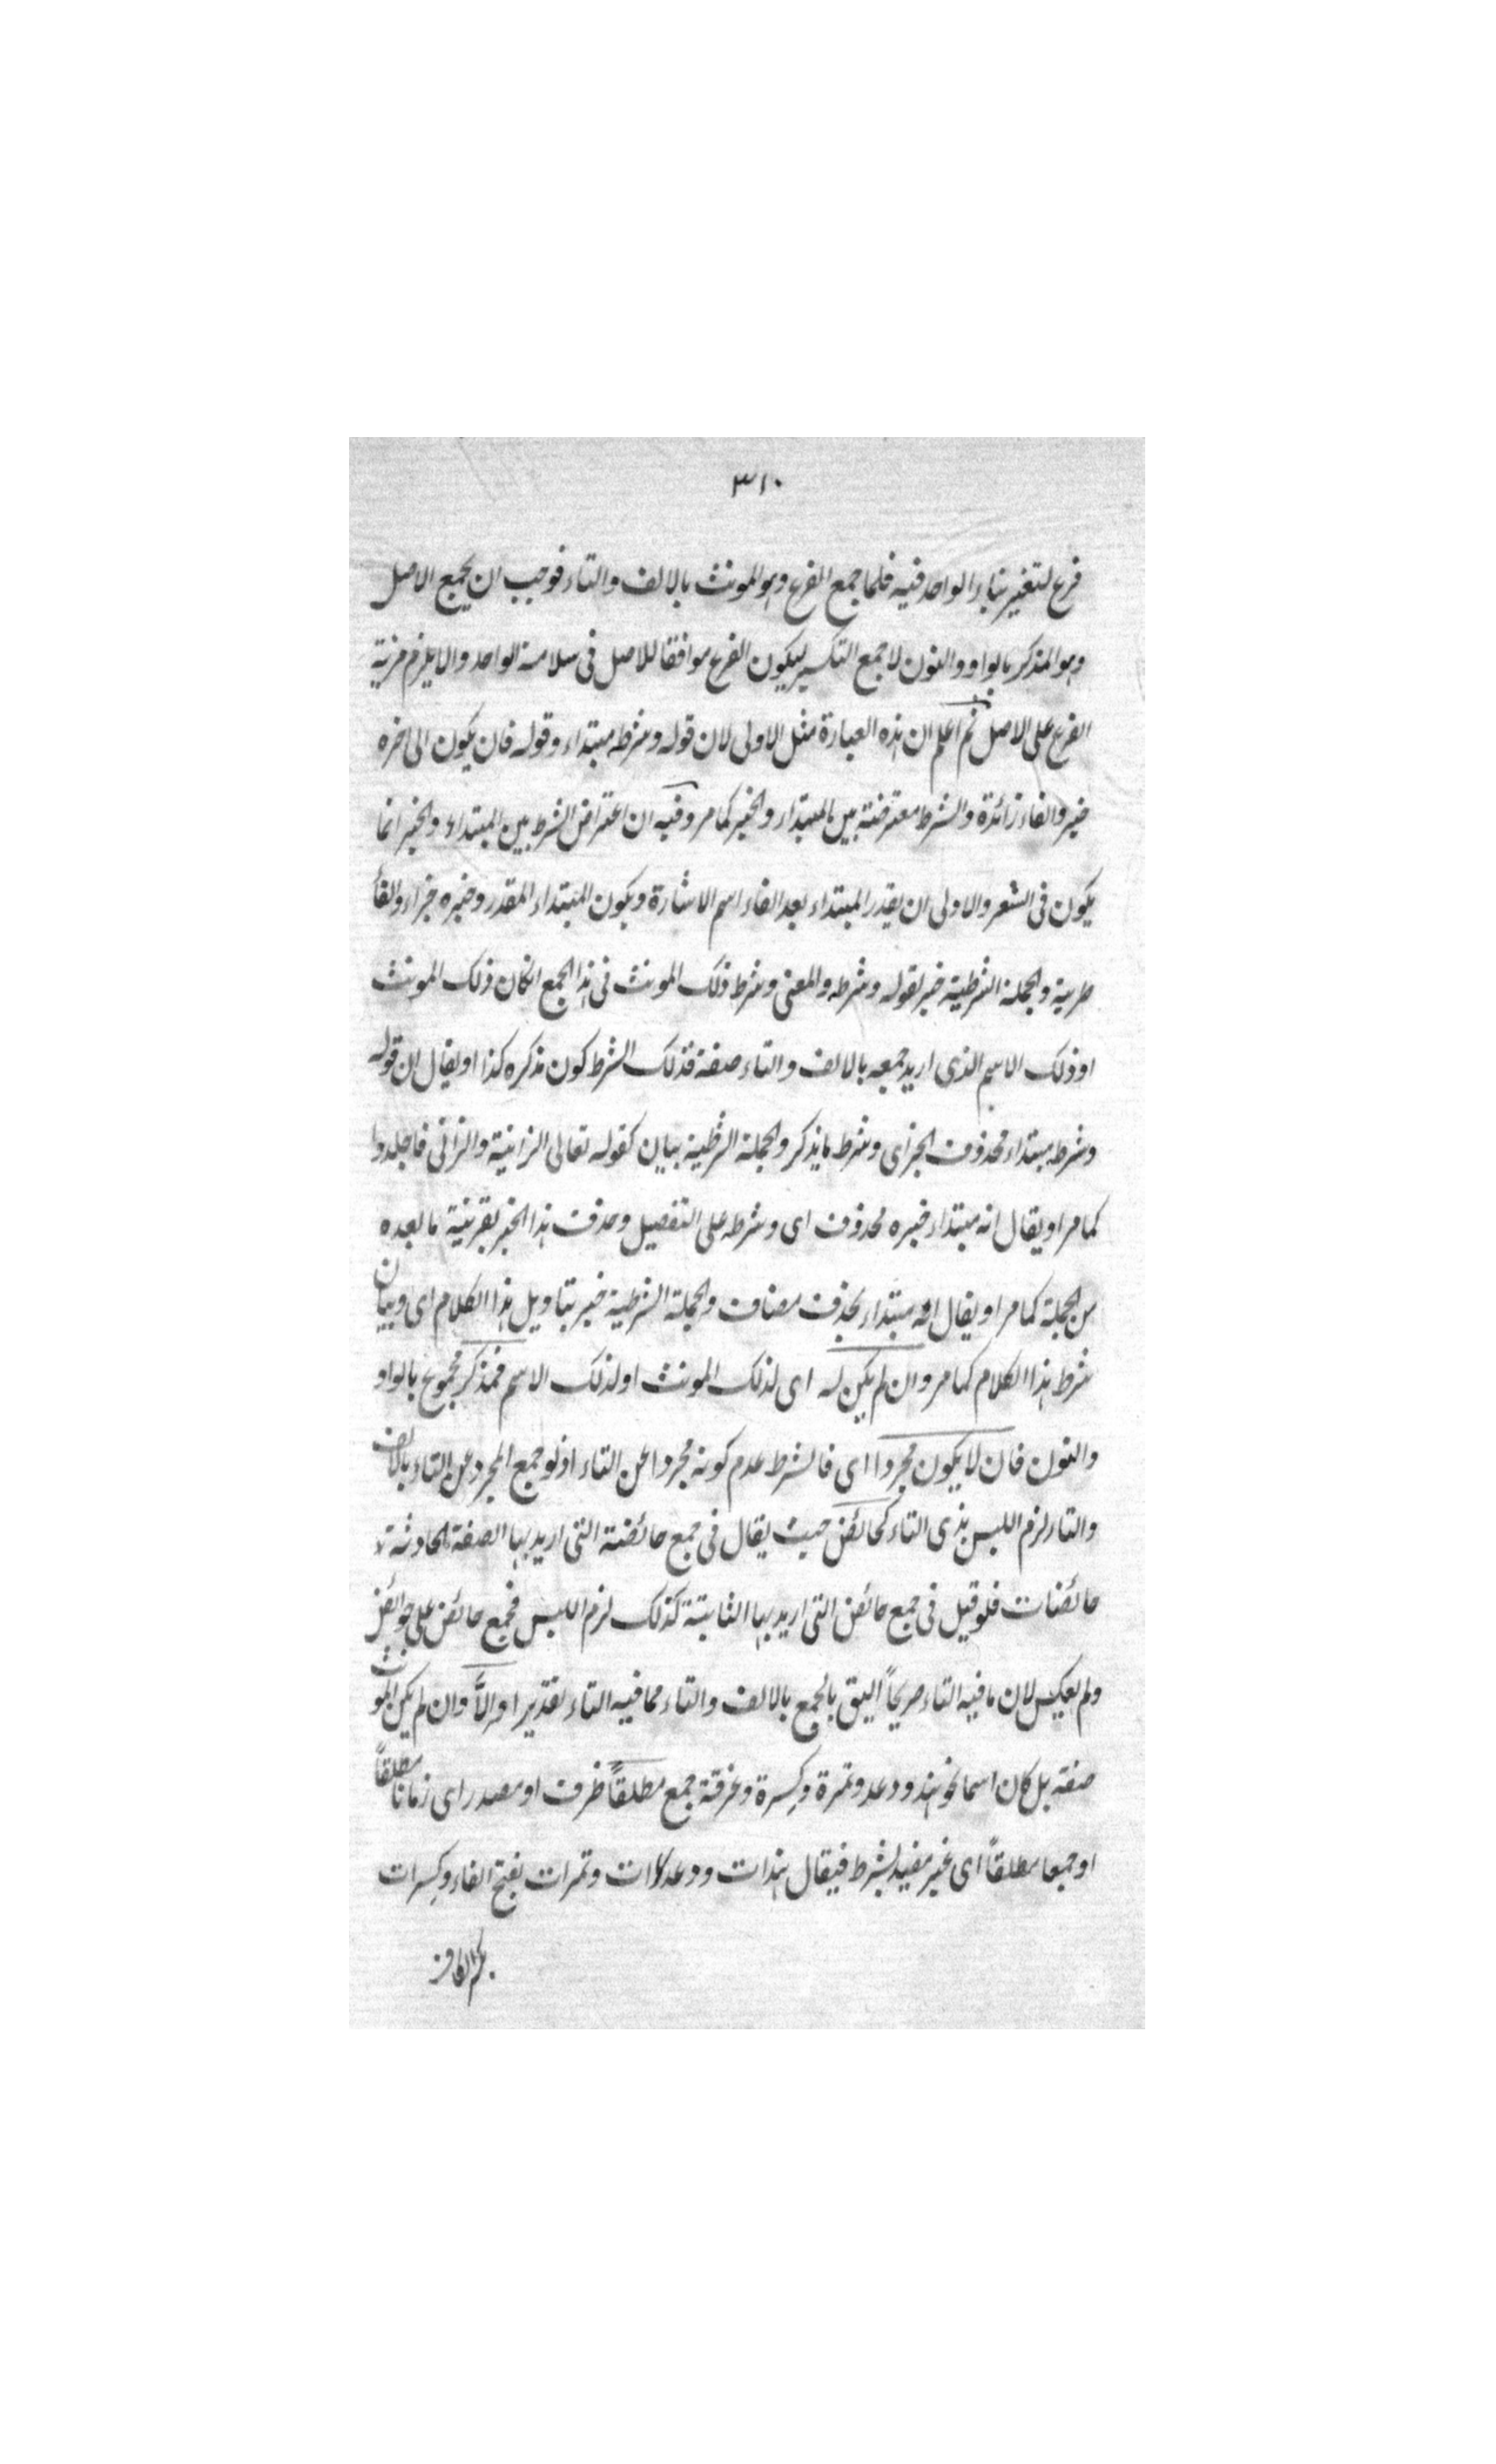 ٣١٠
فرع لتغير بناء الواحد فيه فلما جمع الفرع وهو المونث بالالف والتاء فوجب ان يجمع الاصل
وهو المذكر بالواو والنون لا جمع التكسير ليكون الفرع موافقا للاصل فى سلامة الواحد والا يلزم مزية
الفرع على الاصل ثم اعلم ان هذه العبارة مثل الاولى لان قوله وشرطه مبتداء وقوله فان يكون الى اخره
خبر والفاء زائدة والشرط معترضة بين المبتداء والخبر كما مر وفيه ان اعتراض الشرط بين المبتداء والخبر انما
يكون فى الشعر والاولى ان يقدر المبتداء بعد الفاء اسم الاشارة ويكون المبتداء المقدر وخبره جزاء والفأ
جزئية والجملة الشرطية خبر لقوله وشرطه والمعنى وشرط ذلك المونث فى هذا الجمع انكان ذلك المونث
او ذلك الاسم الذى اريد جمعه بالالف والتاء صفة فذلك الشرط كون مذكره كذا او يقال ان قوله
وشرطه مبتداء محذوف الخبر اى وشرط ما يذكر والجملة الشرطية بيان كقوله تعالى الزانية والزانى فاجلدوا
كما مر او يقال انه مبتداء خبره محذوف اى وشرطه على التفصيل وحذف هذا الخبر بقرينة ما بعده
من الجملة كما مر او يقال انه مبتداء بحذف مضاف والجملة الشرطية خبر بتاويل هذا الكلام اى وبيان
شرط هذا الكلام كما مر وان لم يكن له اى لذلك المونث او لذلك الاسم مذكر مجموع بالواو
والنون فان لا يكون مجردا اى فالشرط عدم كونه مجردا عن التاء اذ لو جمع المجرد عن التاء بالالف
والتاء لزم اللبس بذى التاء كحائض حيث يقال فى جمع حائضة التى اريد بها الصفة الحادثة لا
حائضات فلو قيل فى جمع حائض التى اريد بها الثابتة كذلك لزم اللبس فجمع حائض على حوائض
ولم يعكس لان ما فيه التاء صريحاً اليق بالجمع بالالف والتاء مما فيه التاء تقديرا والاَّ وان لم يكن المونث
صفة بل كان اسما نحو هند ودعد وتمرة وكِسرة وغرفة جمع مطلقاً ظرف او مصدر اى زمانا مطلقاً
او جمعا مطلقاً اى غير مقيد بشرط فيقال هندات ودعدات وتمرات بفتح الفاء وكِسرات